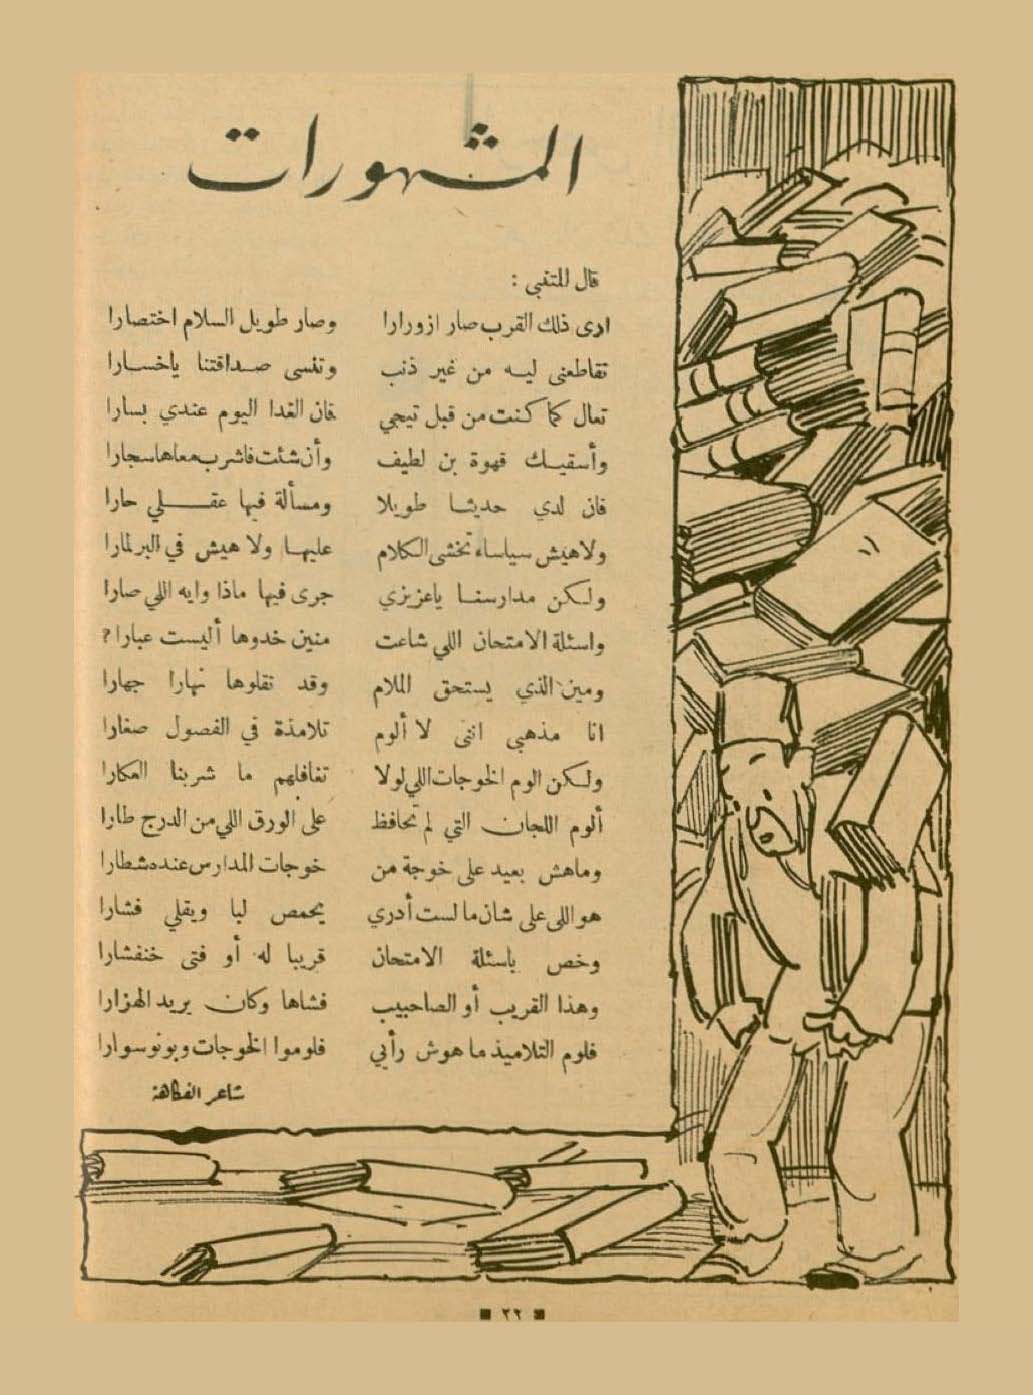 المشهورات
قال المتنبي :
ارى ذلك القرب صار ازورارا وصار طويل السلام اختصارا
تقاطعنى ليه من غير ذنب وتنسى صداقتنا ياخسارا
تعال كما كنت من قبل تيجي فان الغدا اليوم عندي بسارا
وأسقيك قهوة بن لطيف وأن شئت فاشرب معاها سجارا
فان لدي حديثا طويلا ومسألة فيها عقلي حارا
ولاهيش سياساء تخشى الكلام عليها ولا هيش في البرلمارا
ولكن مدارسنا ياعزيزي جرى فيها ماذا وايه اللي صارا
واسئلة الامتحان اللي شاعت منين خدوها أليست عبارا؟
ومين الذي يستحق الملام وقد نقلوها نهارا جهارا
انا مذهبي انني لا ألوم تلامذة في الفصول صغارا
ولكن الوم الخوجات اللي لولا تغافلهم ما شربنا العكارا
ألوم اللجان التي لم تحافظ على الورق اللي من الدرج طارا
وماهش بعيد على خوجة من خوجات المدارس عنده شطارا
هواللى على شان مالست أدري يحمص لبا ويقلي فشارا
وخص باسئلة الامتحان قريبا له أو فتى خنفشارا
وهذا القريب أو الصاحبيب فشاها وكان يريد الهزارا
فلوم التلاميذ ما هوش رأيي فلوموا الخوجات وبونوسوارا
شاعر الفكاهة
٢٦